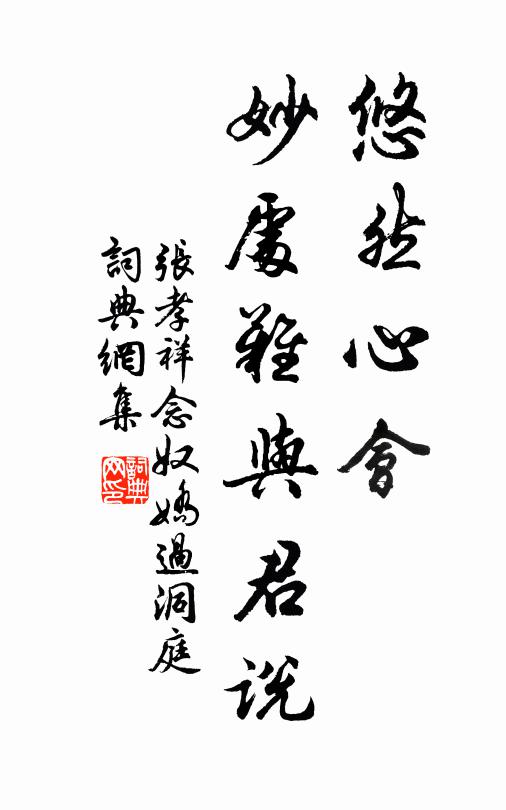 悠然心會
妙處難與君說
張孝祥念奴嬌過洞庭
詞典網集
詞典
网印